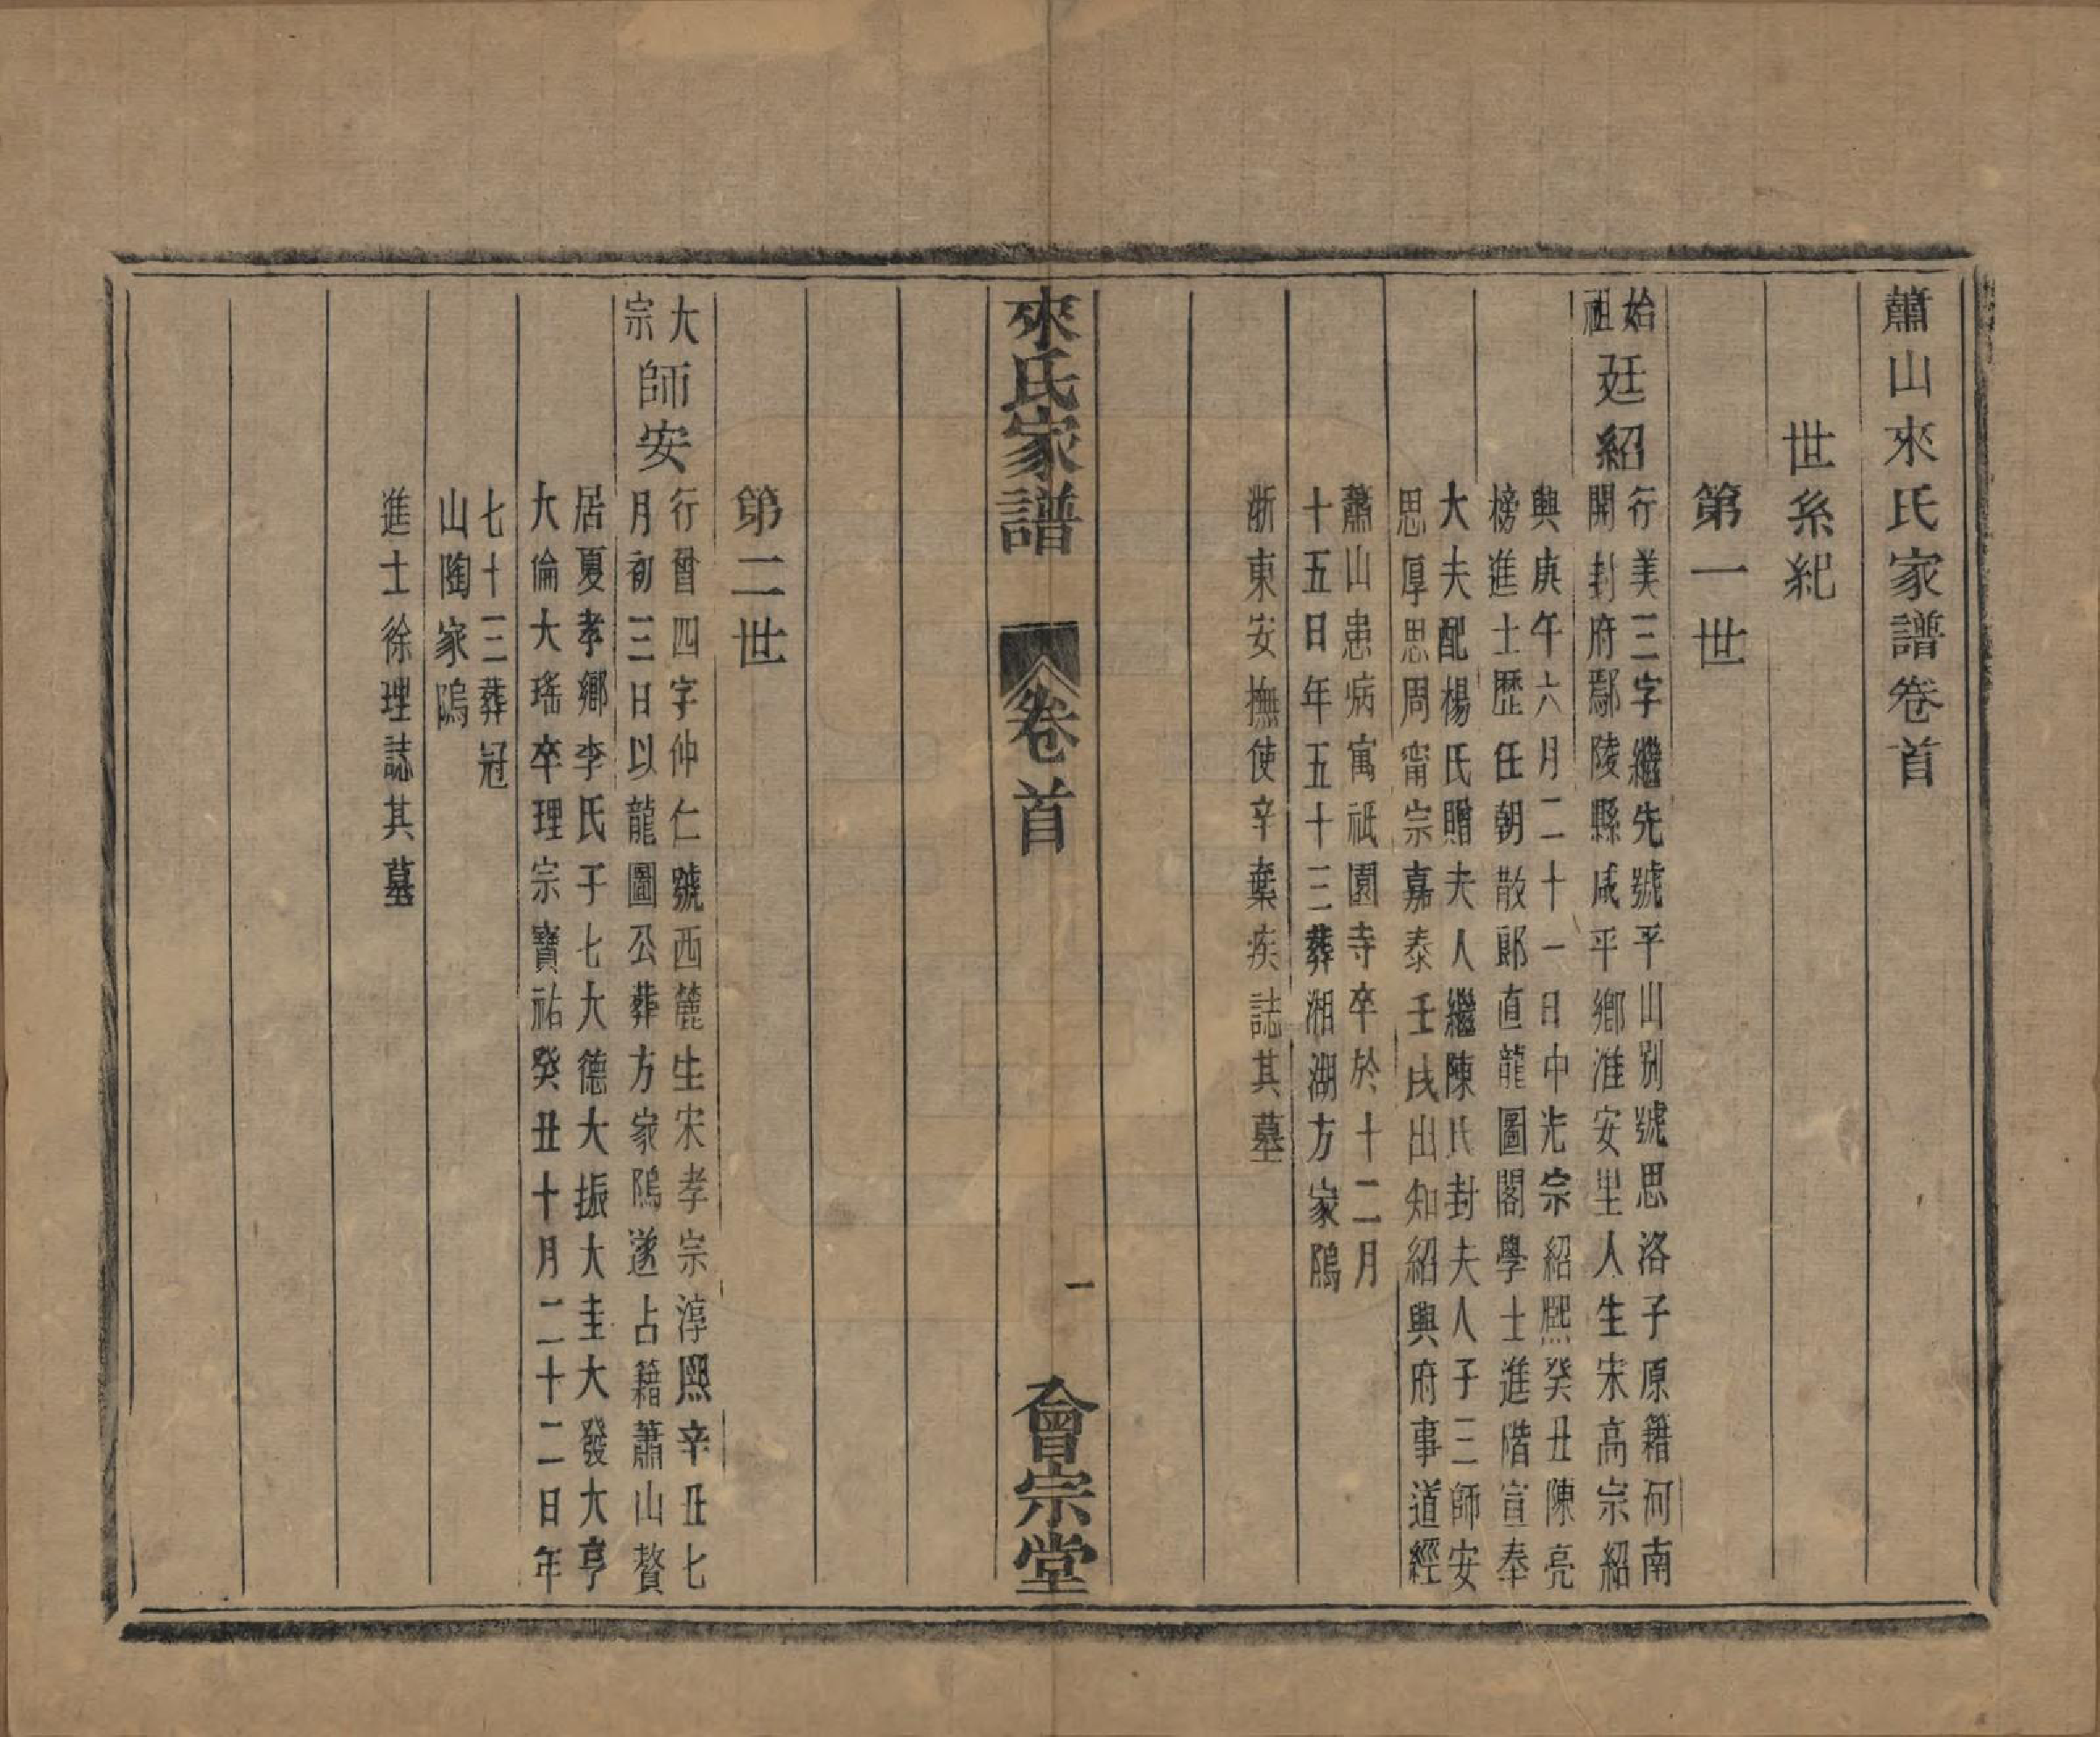 蕭山來氏家譜卷首
世系紀
第一世
始祖
廷紹
行美三字繼先號平山別號思洛子原籍河南
開封府鄢陵縣咸平鄉淮安里人生宋高宗紹
興庚午六月二十一日中光宗紹熙癸丑陳亮
榜進士歷任朝散郎直龍圖閣學士進階宣奉
大夫配楊氏贈夫人繼陳氏封夫人子三師安
思厚思周甯宗嘉泰壬戌出知紹興府事道經
蕭山患病寓祇園寺卒於十二月
十五日年五十三葬湘湖方家隖
浙東安撫使辛棄疾誌其墓
來氏家譜
卷首
一
會宗堂
第二世
大宗
師安
行曾四字仲仁號西麓生宋孝宗淳熙辛丑七
月初三日以龍圖公葬方家隖遂占籍蕭山贅
居夏孝鄉李氏子七大德大振大圭大發大亨
大倫大瑤卒理宗寶祐癸丑十月二十二日年
七十三葬冠
山陶家隖
進士徐理誌其墓